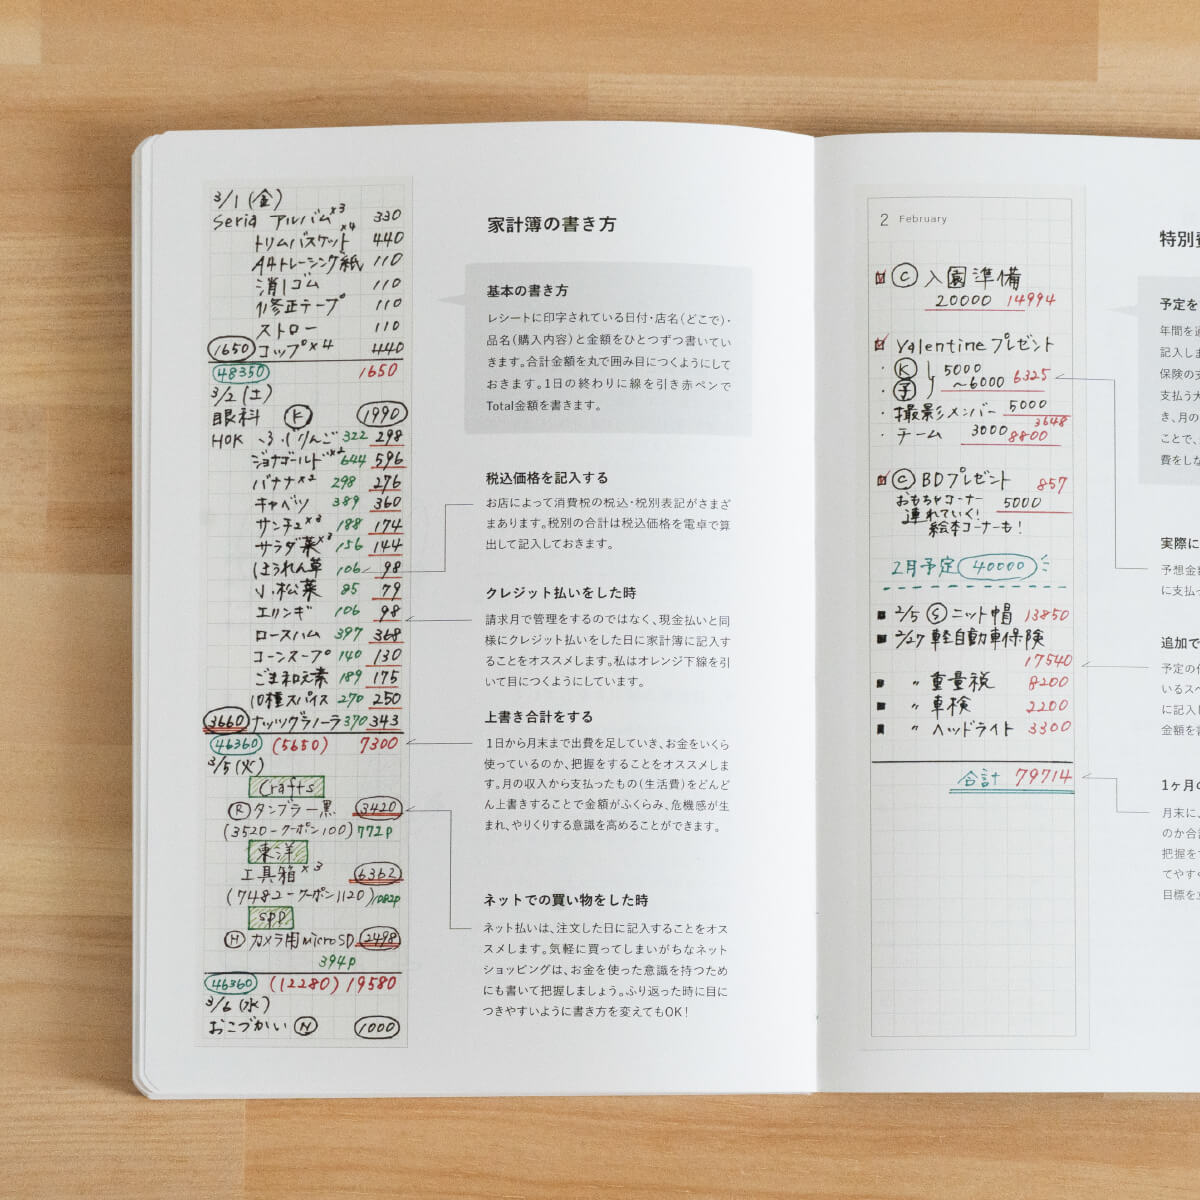 3/1(金)
Seria アルバム×3 330
トリムバスケット×4 440
A4トレーシング紙 110
消しゴム 110
修正テープ 110
ストロー 110
1650 コップ×4 440
48350 1650
3/2(土)
眼科 K 1990
HOK ふじりんご 322 298
ジョナゴールド×2 644 596
バナナ×2 298 276
キャベツ 389 360
サンチュ×2 188 174
サラダ菜 156 144
ほうれん草 106 98
小松菜 85 79
エリンギ 106 98
ロースハム 397 368
コーンスープ 140 130
ごま和え素 189 175
10種スパイス 270 250
3660 ナッツグラノーラ 370 343
46360 (5650) 7300
3/5(火)
Crafts
R タンブラー黒 3420
(3520-クーポン100) 772P
東洋
工具箱×3 6362
(7482-クーポン1120) 1082P
SPP
H カメラ用microSD 2498
394P
46360 (12280) 19580
3/6(水)
おこづかい N 1000
家計簿の書き方
基本の書き方
レシートに印字されている日付・店名(どこで)・
品名(購入内容)と金額をひとつずつ書いてい
きます。合計金額を丸で囲み目につくようにして
おきます。1日の終わりに線を引き赤ペンで
Total金額を書きます。
税込価格を記入する
お店によって消費税の税込・税別表記がさまざ
まあります。税別の合計は税込価格を電卓で算
出して記入しておきます。
クレジット払いをした時
請求月で管理をするのではなく、現金払いと同
様にクレジット払いをした日に家計簿に記入す
ることをオススメします。私はオレンジ下線を引
いて目につくようにしています。
上書き合計をする
1日から月末まで出費を足していき、お金をいくら
使っているのか、把握をすることをオススメしま
す。月の収入から支払ったもの(生活費)をどんど
ん上書きすることで金額がふくらみ、危機感が生
まれ、やりくりする意識を高めることができます。
ネットでの買い物をした時
ネット払いは、注文した日に記入することをオス
スメします。気軽に買ってしまいがちなネット
ショッピングは、お金を使った意識を持つため
にも書いて把握しましょう。ふり返った時に目に
つきやすいように書き方を変えてもOK!
2 February
C 入園準備
20000 14994
Valentineプレゼント
・K 5000
・子 〜6000 6325
・撮影メンバー 5000
3648
・チーム 3000 8800
C BDプレゼント 857
おもちゃコーナー 5000
連れていく!
絵本コーナーも!
2月予定 40000
2/5 S ニット帽 13850
2/27 軽自動車保険
17540
〃 重量税 8200
〃 車検 2200
〃 ヘッドライト 3300
合計 79714
特別費
予定を
年間を通
記入しま
保険の支
支払う大
き、月の
ことで、
費をしな
実際に
予想金額
に支払っ
追加で
予定の他
いるスペ
に記入し
金額を書
1ヶ月の
月末に、
のか合計
把握をす
てやすく
目標を立